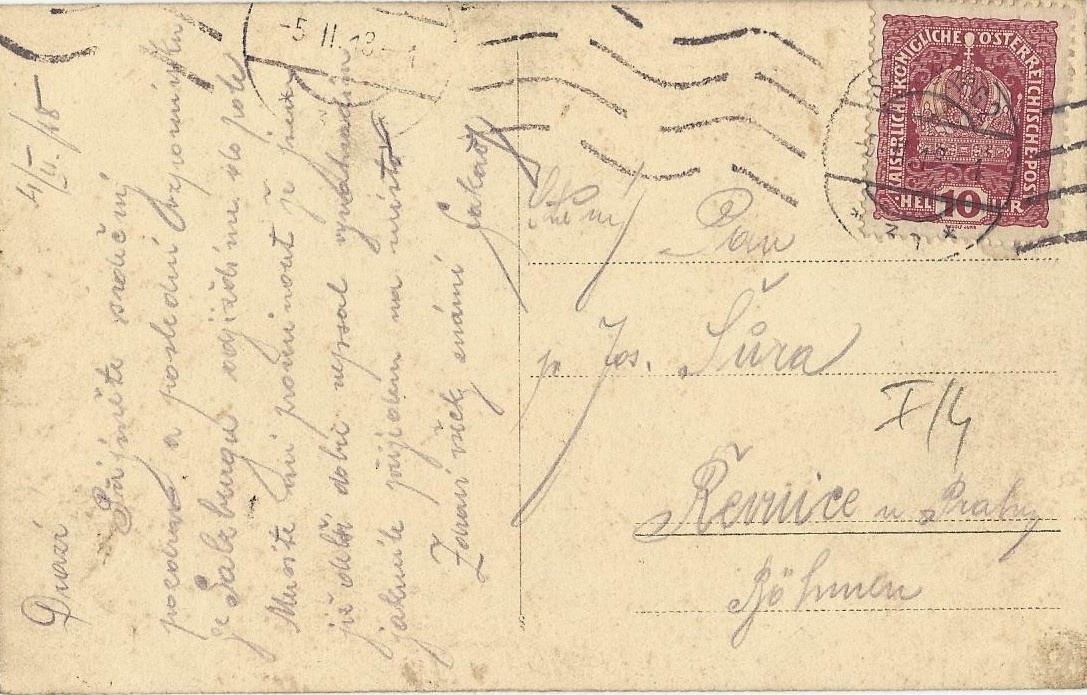 4/II./18
Drazí
Přijměte srdečný
pozdrav a poslední vzpomínku
ze Salzburgu odjíždíme do pole
Musíte mi prominout že jsem
již delší dobu nepsal
jakmile přijedem na místo
Zdraví všecky známí
-5 II 18
KAISERLICHE KÖNIGLICHE ÖSTERREICHISCHE POST
HELLER 10 HELLER
Pan
Jos. Šůra
I/4
Řevnice u Prahy
Böhmen